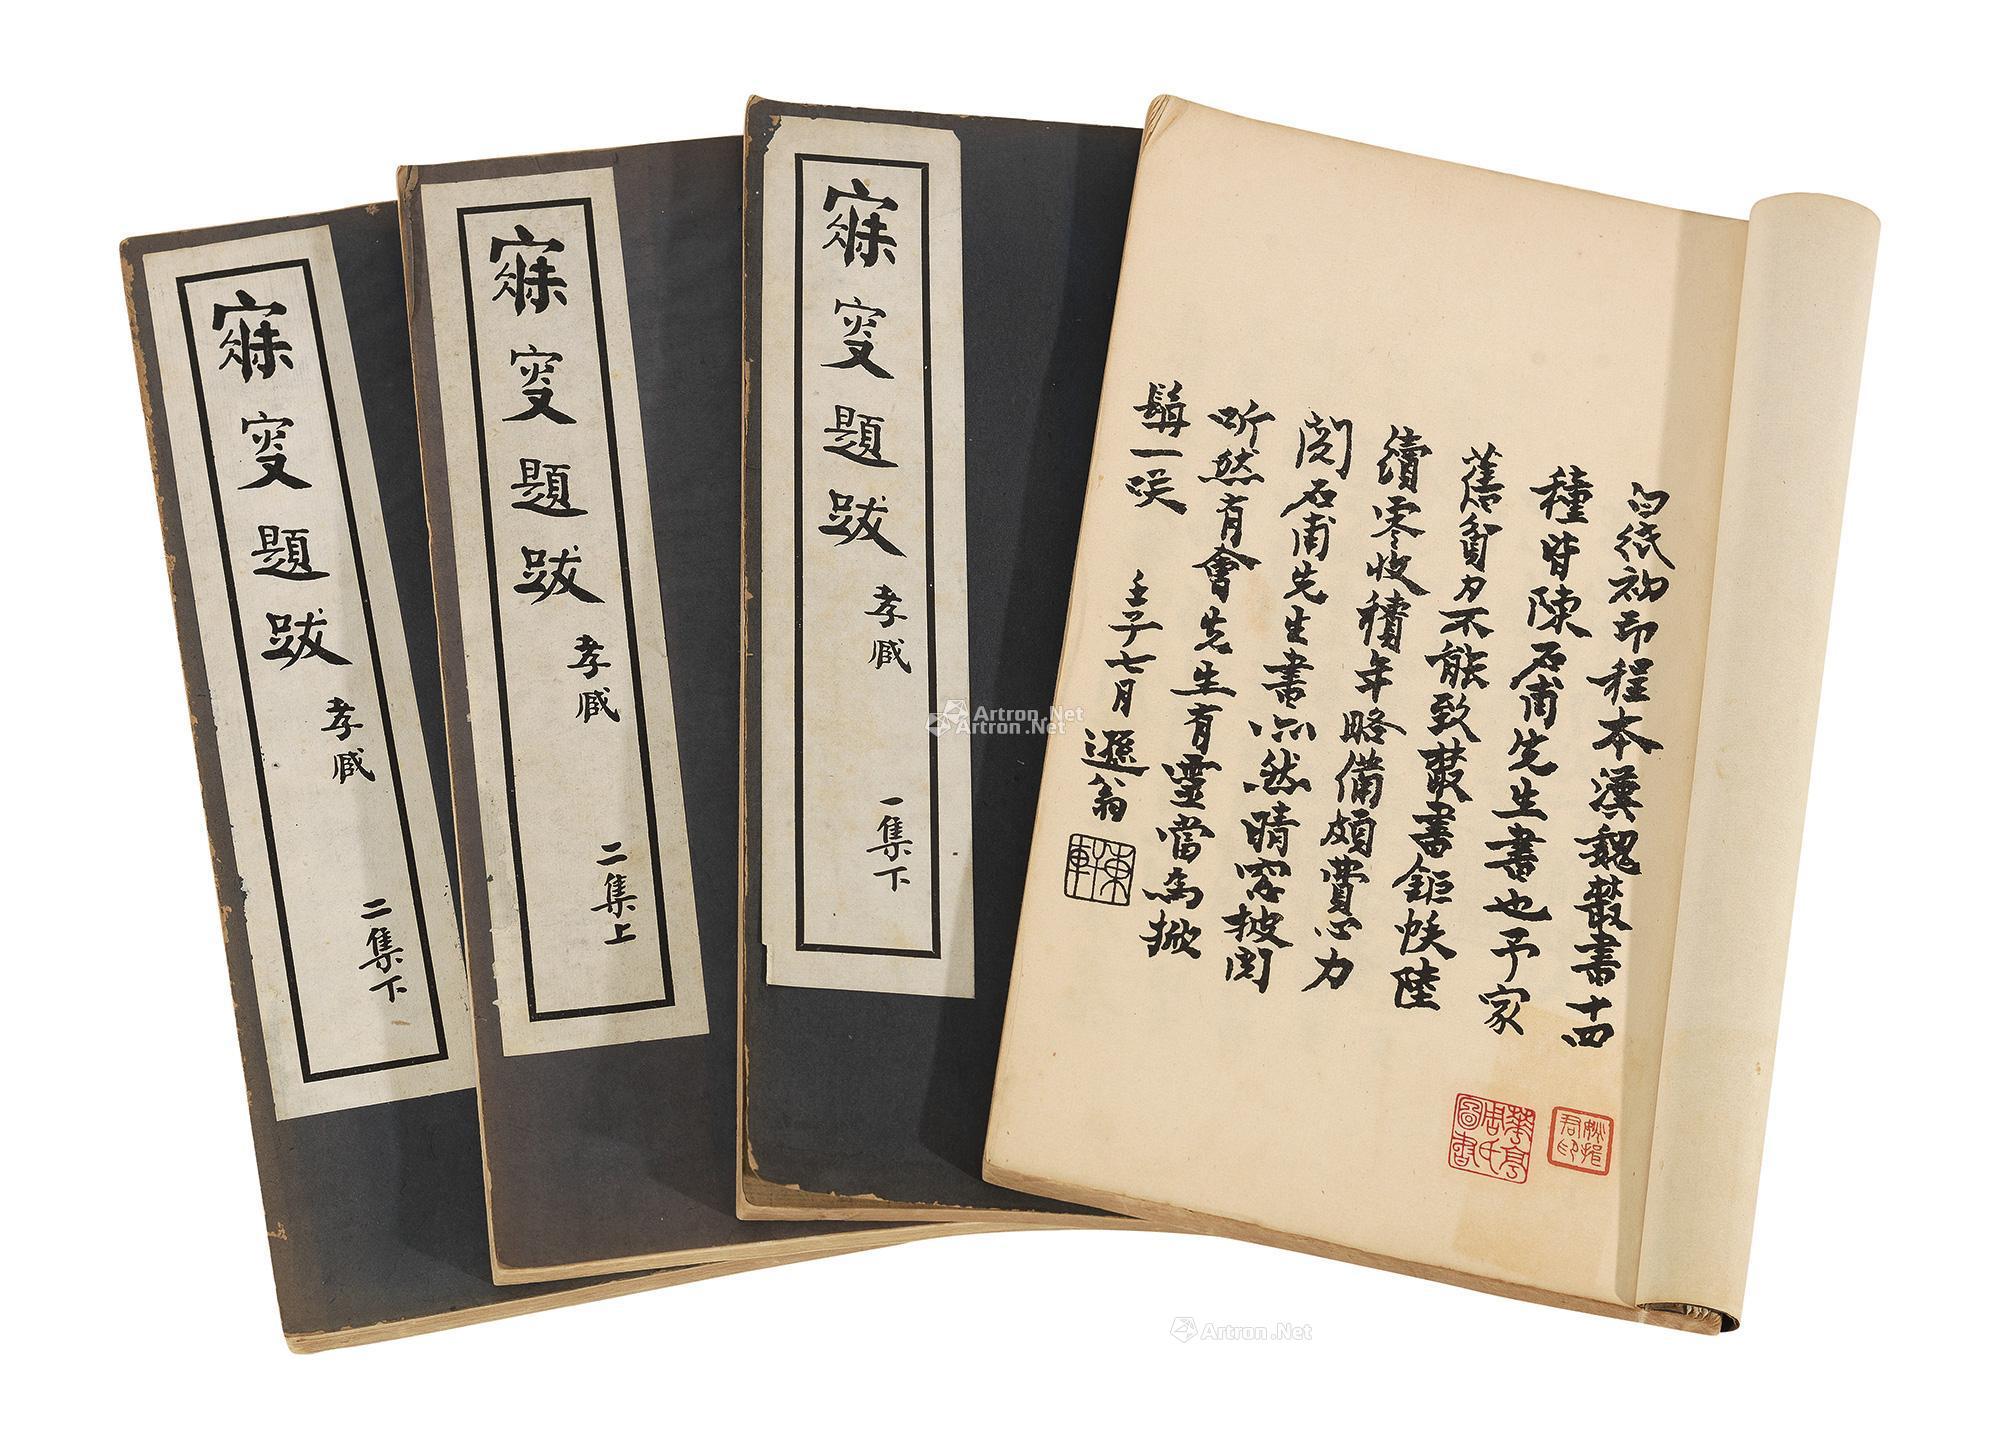 寐叟題跋
孝臧
二集下
寐叟題跋
孝臧
二集上
寐叟題跋
孝臧
一集下
白紙初印程本漢魏叢書十四
種皆陳石甫先生書也予家
舊貧力不能致叢書鉅帙陸
續零收積年略備頗費心力
閱石甫先生書亦然晴窓披閱
听然有會先生有靈當為掀
髯一笑
壬子七月遯翁
華亭
君氏
圖書
君印
Artron.Net
Artron.Net
Artron.Net